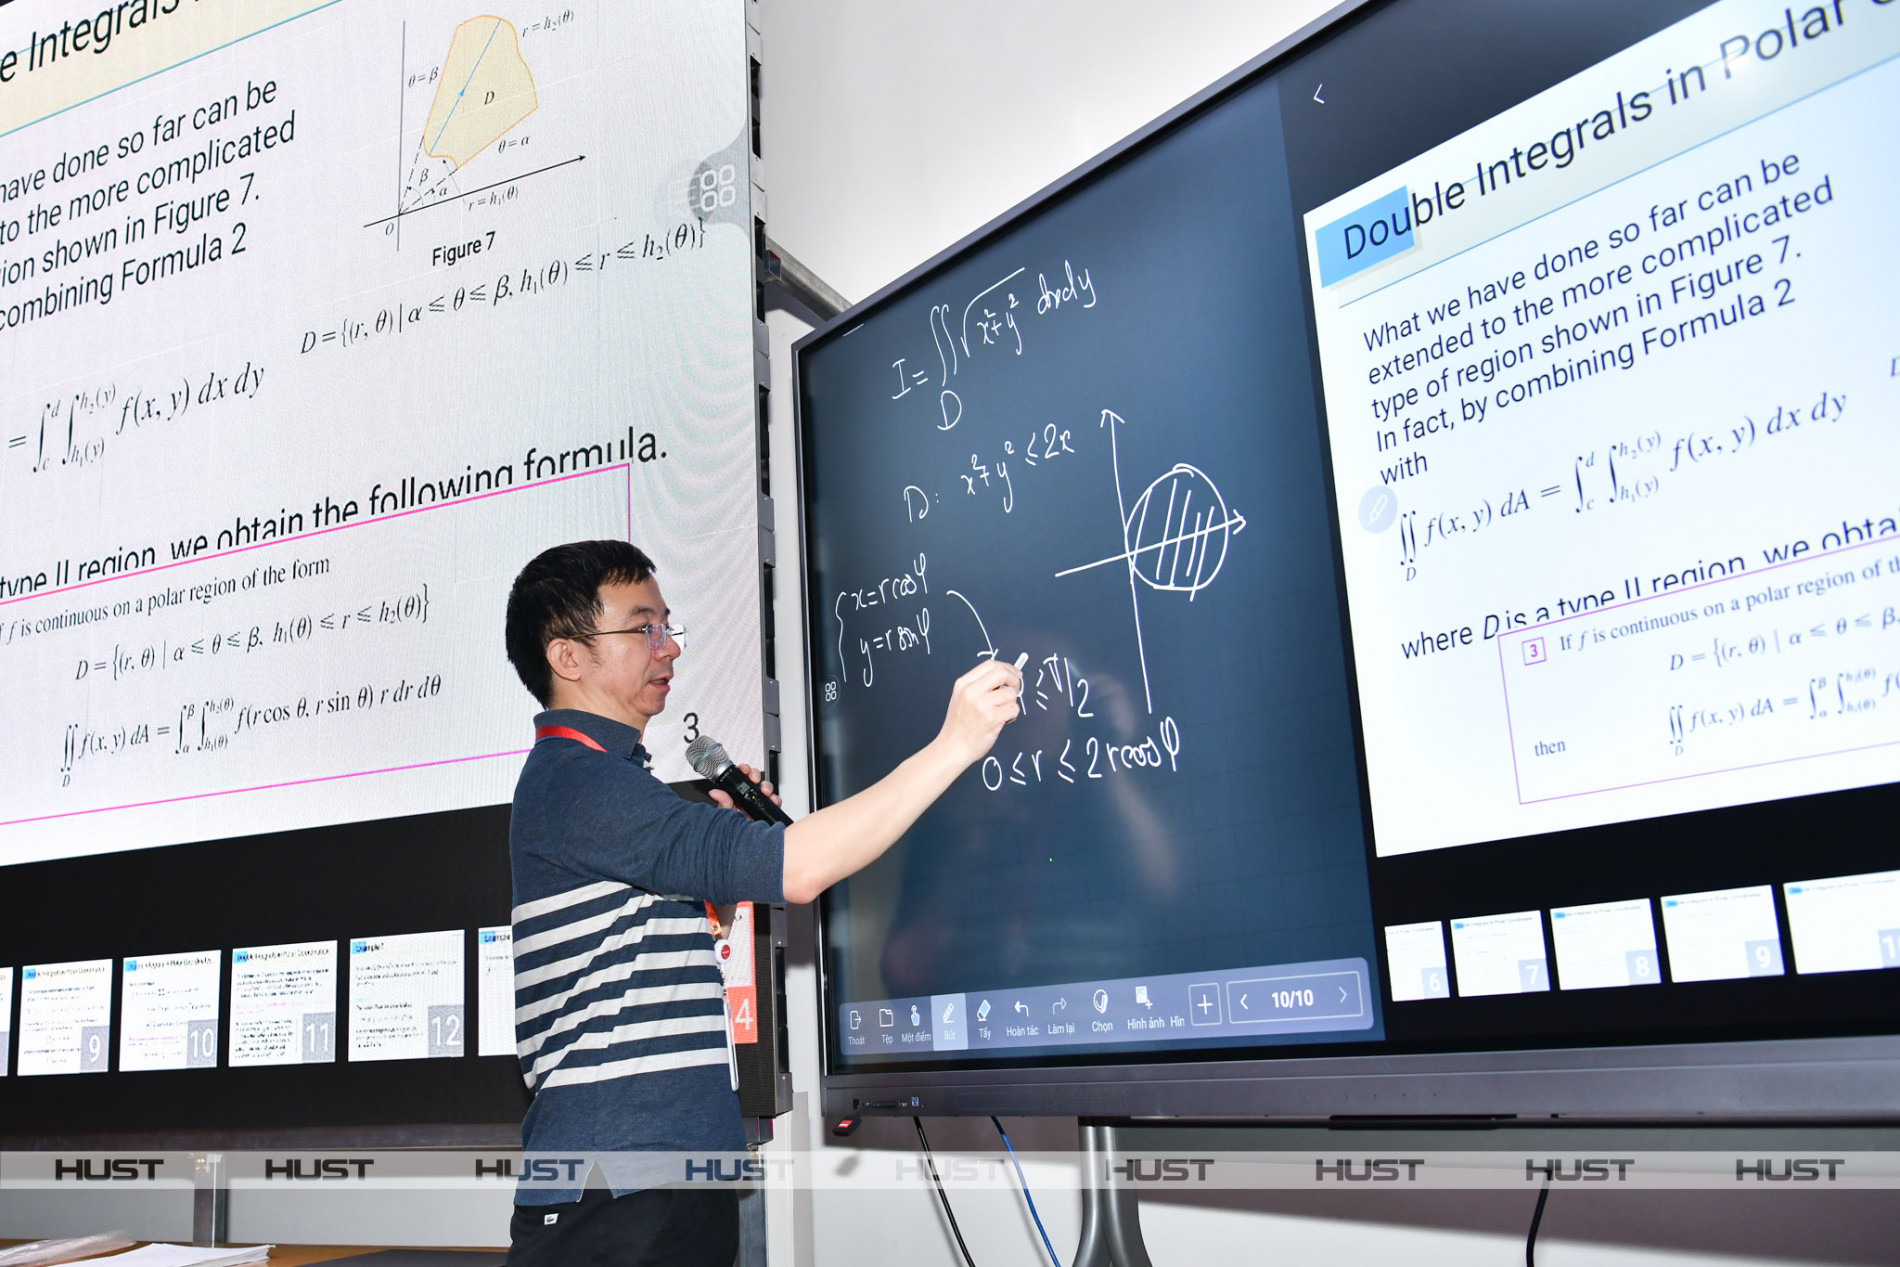 e Integrals
have done so far can be
to the more complicated
ion shown in Figure 7.
combining Formula 2
r = h₂(θ)
θ = β
D
θ = α
β
α
r = h₁(θ)
0
Figure 7
D = {(r, θ) | α ≤ θ ≤ β, h₁(θ) ≤ r ≤ h₂(θ)}
= ∫_c^d ∫_{h₁(y)}^{h₂(y)} f(x, y) dx dy
type II region, we obtain the following formula.
f is continuous on a polar region of the form
D = {(r, θ) | α ≤ θ ≤ β, h₁(θ) ≤ r ≤ h₂(θ)}
∬_D f(x, y) dA = ∫_α^β ∫_{h₁(θ)}^{h₂(θ)} f(r cos θ, r sin θ) r dr dθ
3
9
10
11
Example 1
12
4
I = ∬_D √(x²+y²) dxdy
D: x²+y² ≤ 2x
{ x = r cos φ
y = r sin φ
≤ π/2
0 ≤ r ≤ 2 r cos φ
Thoát
Tệp
Một điểm
Bút
Tẩy
Hoàn tác
Làm lại
Chọn
Hình ảnh
Hìn
+
< 10/10 >
<
Double Integrals in Polar
What we have done so far can be
extended to the more complicated
type of region shown in Figure 7.
In fact, by combining Formula 2
with
∬_D f(x, y) dA = ∫_c^d ∫_{h₁(y)}^{h₂(y)} f(x, y) dx dy
where D is a type II region, we obta
3 If f is continuous on a polar region of th
D = {(r, θ) | α ≤ θ ≤ β,
then ∬_D f(x, y) dA = ∫_α^β ∫_{h₁(θ)}^{h₂(θ)} f(
6
7
8
9
1
HUST HUST HUST HUST HUST HUST HUST HUST HUST